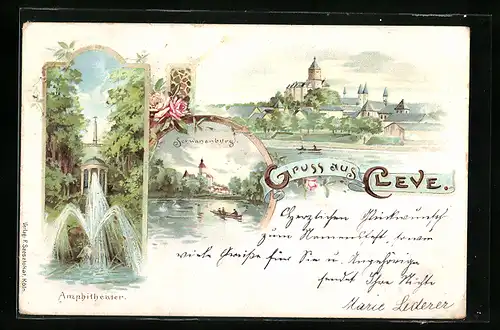 Schwanenburg.
Gruss aus
CLEVE.
Herzlichen Glückwunsch
zum Namensfest, sowie
viele Grüße für Sie u. Angehörige
sendet Ihre Nichte
Marie Lederer
Amphitheater.
Verlag F. Soessteiner, Köln.